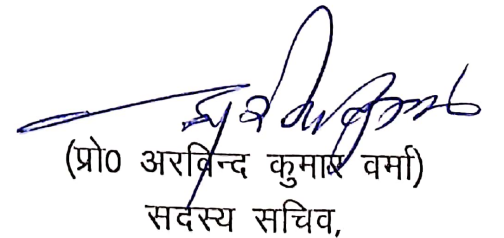 (प्रो0 अरविन्द कुमार वर्मा)
सदस्य सचिव,